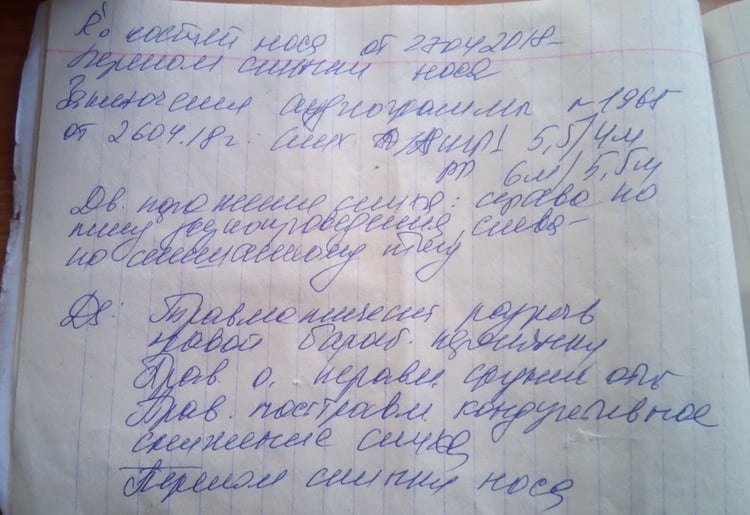 Rо костей носа от 27.04.2018-
Перелом спинки носа
Заключения аудиограммы №1961
от 26.04.18г. слух АД/АS шр 5,5/4м
рр 6м/5,5м
Дв. поражение слуха: справа по
типу звукопроведения слева-
по смешанному типу
Ds: Травматический разрыв
правой бараб. перепонки
Прав. о.
Прав. посттравм. кондуктивное
снижение слуха
Перелом спинки носа